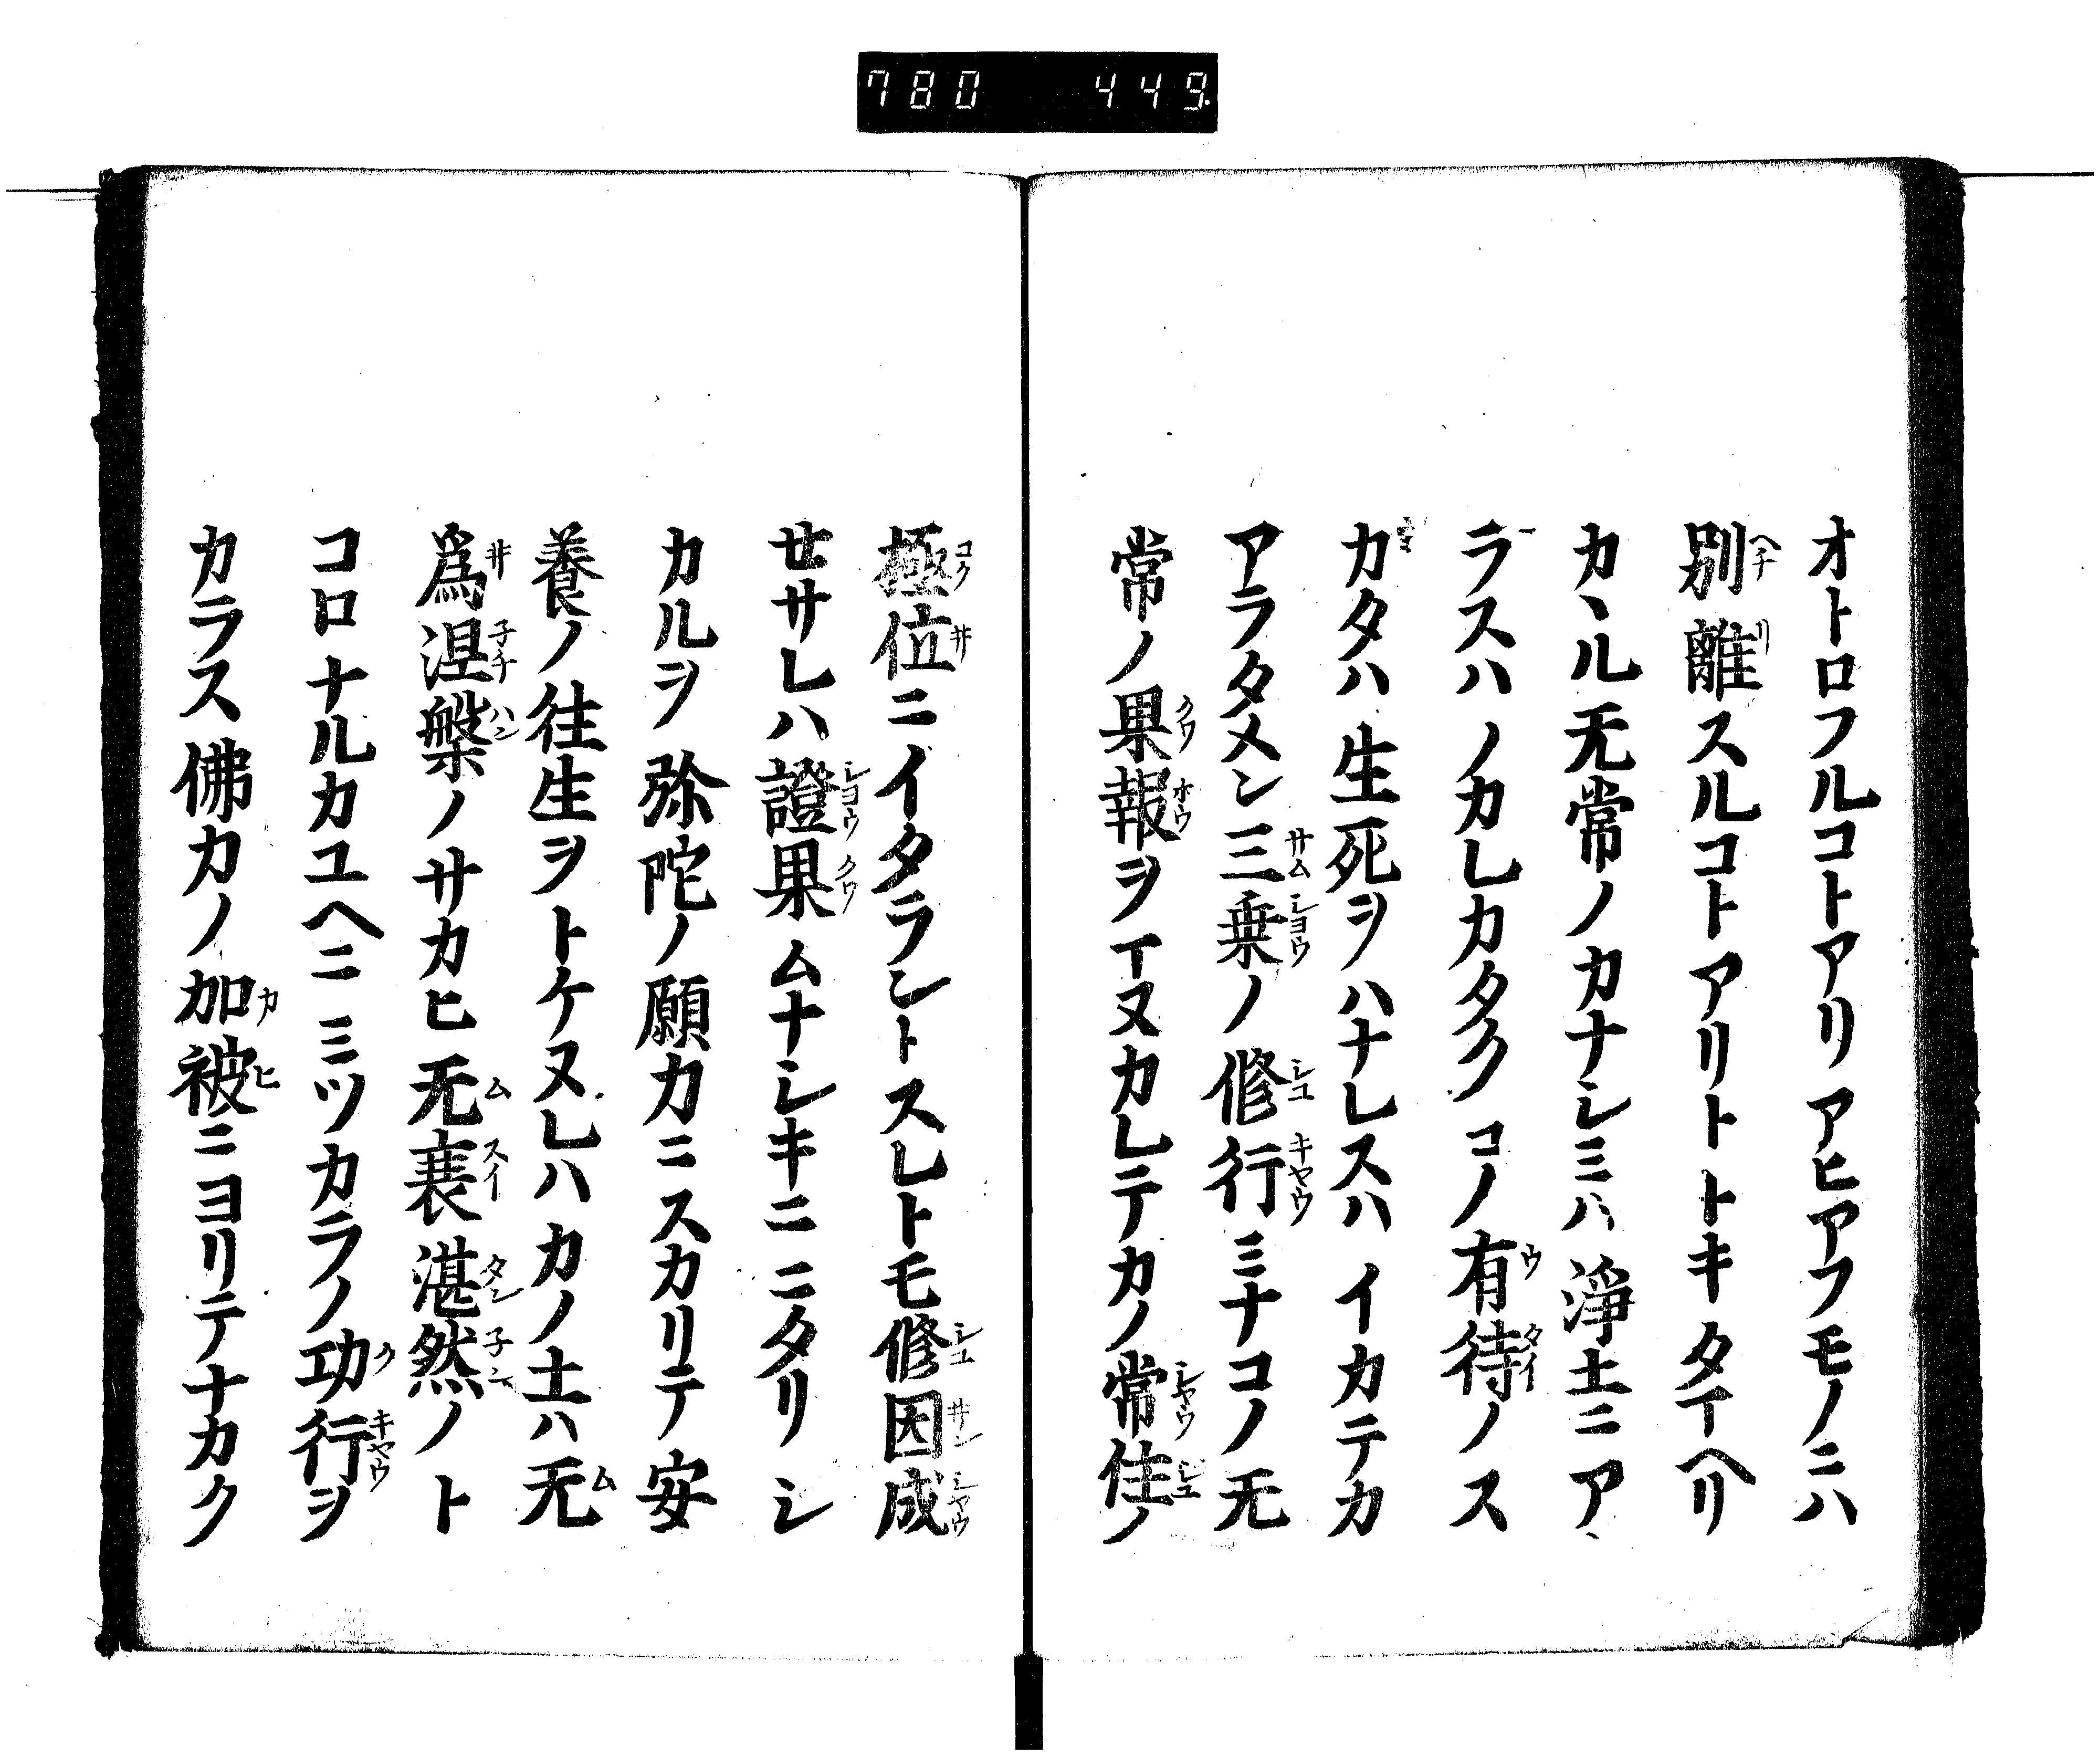 780 449
オトロフルコトアリアヒアフモノニハ
別離スルコトアリトトキタマヘリ
カヽル无常ノカナシミハ淨土ニア
ラスハノカレカタクコノ有待ノス
カタハ生死ヲハナレスハイカテカ
アラタメン三乗ノ修行ミナコノ无
常ノ果報ヲマヌカレテカノ常住ノ
極位ニイタラントスレトモ修因成
セサレハ證果ムナシキニニタリシ
カルヲ弥陀ノ願力ニスカリテ安
養ノ往生ヲトケヌレハカノ土ハ无
爲涅槃ノサカヒ无衰湛然ノト
コロナルカユヘニミツカラノ功行ヲ
カラス佛力ノ加被ニヨリテナカク